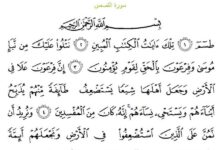 سورة القصص
بِسْمِ ٱللَّهِ ٱلرَّحْمَٰنِ ٱلرَّحِيمِ
طسٓمٓ ١ تِلْكَ ءَايَٰتُ ٱلْكِتَٰبِ ٱلْمُبِينِ ٢ نَتْلُوا۟ عَلَيْكَ مِن نَّبَإِ
مُوسَىٰ وَفِرْعَوْنَ بِٱلْحَقِّ لِقَوْمٍ يُؤْمِنُونَ ٣ إِنَّ فِرْعَوْنَ عَلَا فِى
ٱلْأَرْضِ وَجَعَلَ أَهْلَهَا شِيَعًا يَسْتَضْعِفُ طَآئِفَةً مِّنْهُمْ يُذَبِّحُ
أَبْنَآءَهُمْ وَيَسْتَحْىِۦ نِسَآءَهُمْ إِنَّهُۥ كَانَ مِنَ ٱلْمُفْسِدِينَ ٤ وَنُرِيدُ أَن
نَّمُنَّ عَلَى ٱلَّذِينَ ٱسْتُضْعِفُوا۟ فِى ٱلْأَرْضِ وَنَجْعَلَهُمْ أَئِمَّةً